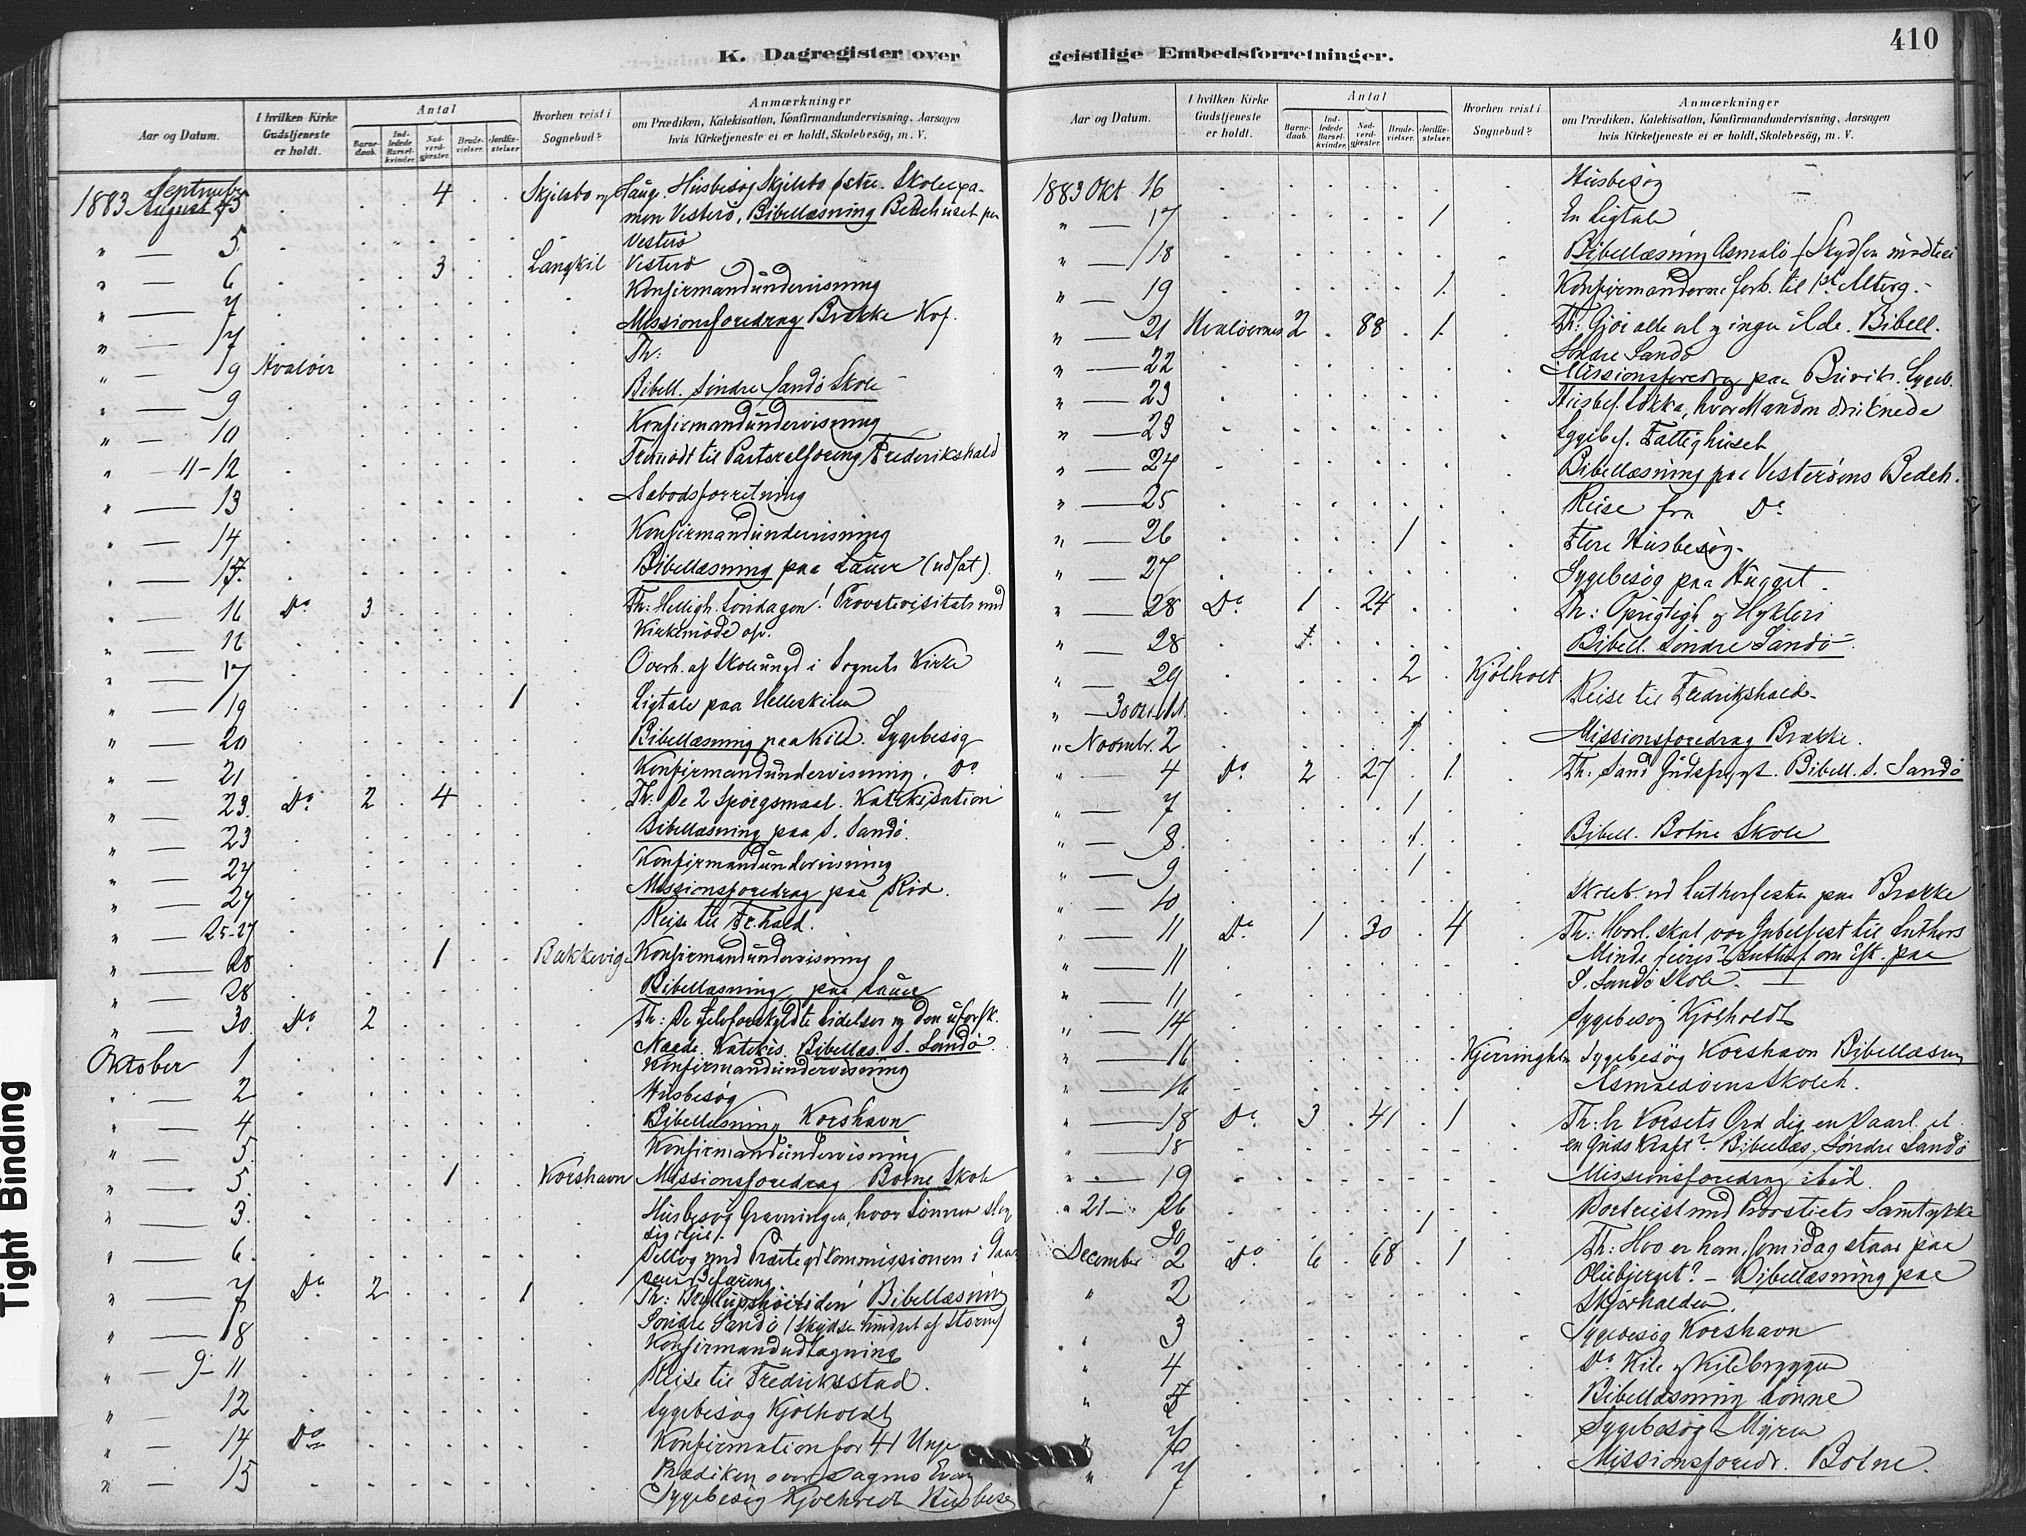 K. Dagregister over
Aar og Datum.
I hvilken Kirke Gudstjeneste er holdt.
Antal
Barnedaab.
Indledede Barselkvinder.
Nadverdgjæster.
Brudevielser.
Jordfæstelser.
Hvorhen reist i Sognebud?
Anmærkninger
om Prædiken, Katekisation, Konfirmandundervisning, Aarsagen
hvis Kirketjeneste ei er holdt, Skolebesøg, m. V.
1883 September 4 Skjelsbo og Haug. Husbesøg Skjelsbo
Vesterö, Bibellæsning Bedehuset paa
" — 5 Vesterö
" — 6 3 Langkil Vesterö
" — 7 Konfirmandundervisning
" — 7 Missionsforedrag Brække
" — 9 Hvalöer Th:
" — 9 Bibell. Söndre Sandö Skole
" — 10 Konfirmandundervisning
" — 11-12 Fremödt til Pastoralforening Frederikshald
" — 13 Nabodsforretning
" — 14 Konfirmandundervisning
" — Bibellæsning paa Lauer (udsat).
" — 16 Do 3 Th: Helligh. Söndagen! Provstevisitats med
" — 16 Kirkemöde
" — 17 Overh. af Skoleungd i Sognets Kirke
" — 19 1 Ligtale paa Helleskilen
" — 20 Bibellæsning paa Kile. Sygebesög
" — 21 Konfirmandundervisning. Do
" — 23. Do 2 4 Th: De 2 Spörgsmaal. Katekisation
" — 23 Bibellæsning paa S. Sandö.
" — 24 Konfirmandundervisning
" — 24 Missionsforedrag paa Röd.
" — 25-27 Reise til Fr.hald.
" — 28 1 Bakkevig Konfirmandundervisning
" — 28 Bibellæsning paa Lauer
" — 30. Do 2 Th: De selvforskyldte Lidelser og den uforsk.
Naade. Katekis. Bibellæs. S. Sandö.
Oktober 1 Konfirmandundervisning
" — 2 Husbesög
" — 4 Bibellæsning Korshavn
" — 5. Konfirmandundervisning
" — 5 1 Korshavn Missionsforedrag Botne Skole
" — 3. Husbesög Gravningen, hvor Sönnen
" — 6. Deltog med Præstegdkommissionen i
Befaring
" — 7 Do 2 1 Th: Bryllupshöitiden! Bibellæsning
Söndre Sandö (Skydsen hindret af Storm)
" — 8 Konfirmandudtagning
" — 9-11 Reise til Fredriksstad.
" — 12 Sygebesög Kjölholdt
" — 14 Do Konfirmation for 41 Unge
" — 15 Prædiken over Dagens Evan
Sygebesög Kjölholdt Husbesög
geistlige Embedsforretninger.
410
Aar og Datum.
I hvilken Kirke Gudstjeneste er holdt.
Antal
Barnedaab.
Indledede Barselkvinder.
Nadverdgjæster.
Brudevielser.
Jordfæstelser.
Hvorhen reist i Sognebud?
Anmærkninger
om Prædiken, Katekisation, Konfirmandundervisning, Aarsagen
hvis Kirketjeneste ei er holdt, Skolebesøg, m. V.
1883 Okt 16 Husbesög
" — 17 1 En Ligtale
" — 18 Bibellæsning Asmalö
" — 19 1. Konfirmanderne forb. til 1ste Alterg.
" — 21 Hvalöernes 2 88 1. Th: Gjör alle vel og ingen ilde. Bibell.
" — 22 Söndre Sandö
" — 23 Missionsforedrag paa Brevik. Sygeb.
" — 23 Husbes. Lökka, hvor Manden druknede
" — 24 Sygebes. Fattighuset
" — 25 Bibellæsning paa Vesteröens Bedeh.
" — 26 1 Reise fra Do
" — 27 Flere Husbesög.
Sygebesög paa Hugget
" — 28 Do 1 24 Th: Oprigtigh og Hykleri
" — 28 Bibell. Söndre Sandö
" — 29 2 Kjölholt
" — 30 Reise til Fredrikshald.
" Novembr. 2 1 Missionsforedrag Brække.
" — 4 Do 2 27 1. Th: Sand Gudsfrygt. Bibell. S. Sandö
" — 7 1
" — 8. 1. Bibell. Botne Skole
" — 9 1
" — 10 Skoleb. ved Lutherfesten paa Brække
" — 11 Do 1 30 4 Th: Hvorl. skal vor Jubelfest til Luthers
" — 11 Minde feires? paa
" — 11 S. Sandö Skole.
" — 14 Sygebesög Kjölholdt
" — 16 Kjerringholm Sygebesög Korshavn Bibellæsning
" — 16 Asmalöens Skoleh.
" — 18 Do 3 41 1 Th: Er Korsets Ord dig en Daarl. el
" — 18 en Guds Kraft? Bibellæs. Söndre Sandö
" — 19 Missionsforedrag ibid.
" 21 — 26 1 Bortreist med Provstiets Samtykke
30
December 2 Do 6 68 1 Th: Hvo er han som idag staar paa
Oliebjerget? — Bibellæsning paa
" 2 Skjærhalden.
" 3 Sygebesög Korshavn
" 4 Do Kile og Kilebryggen
" 5 Bibellæsning Lönne
" Sygebesög Myren
" 7 Missionsforedr. Botne.
Tight Binding